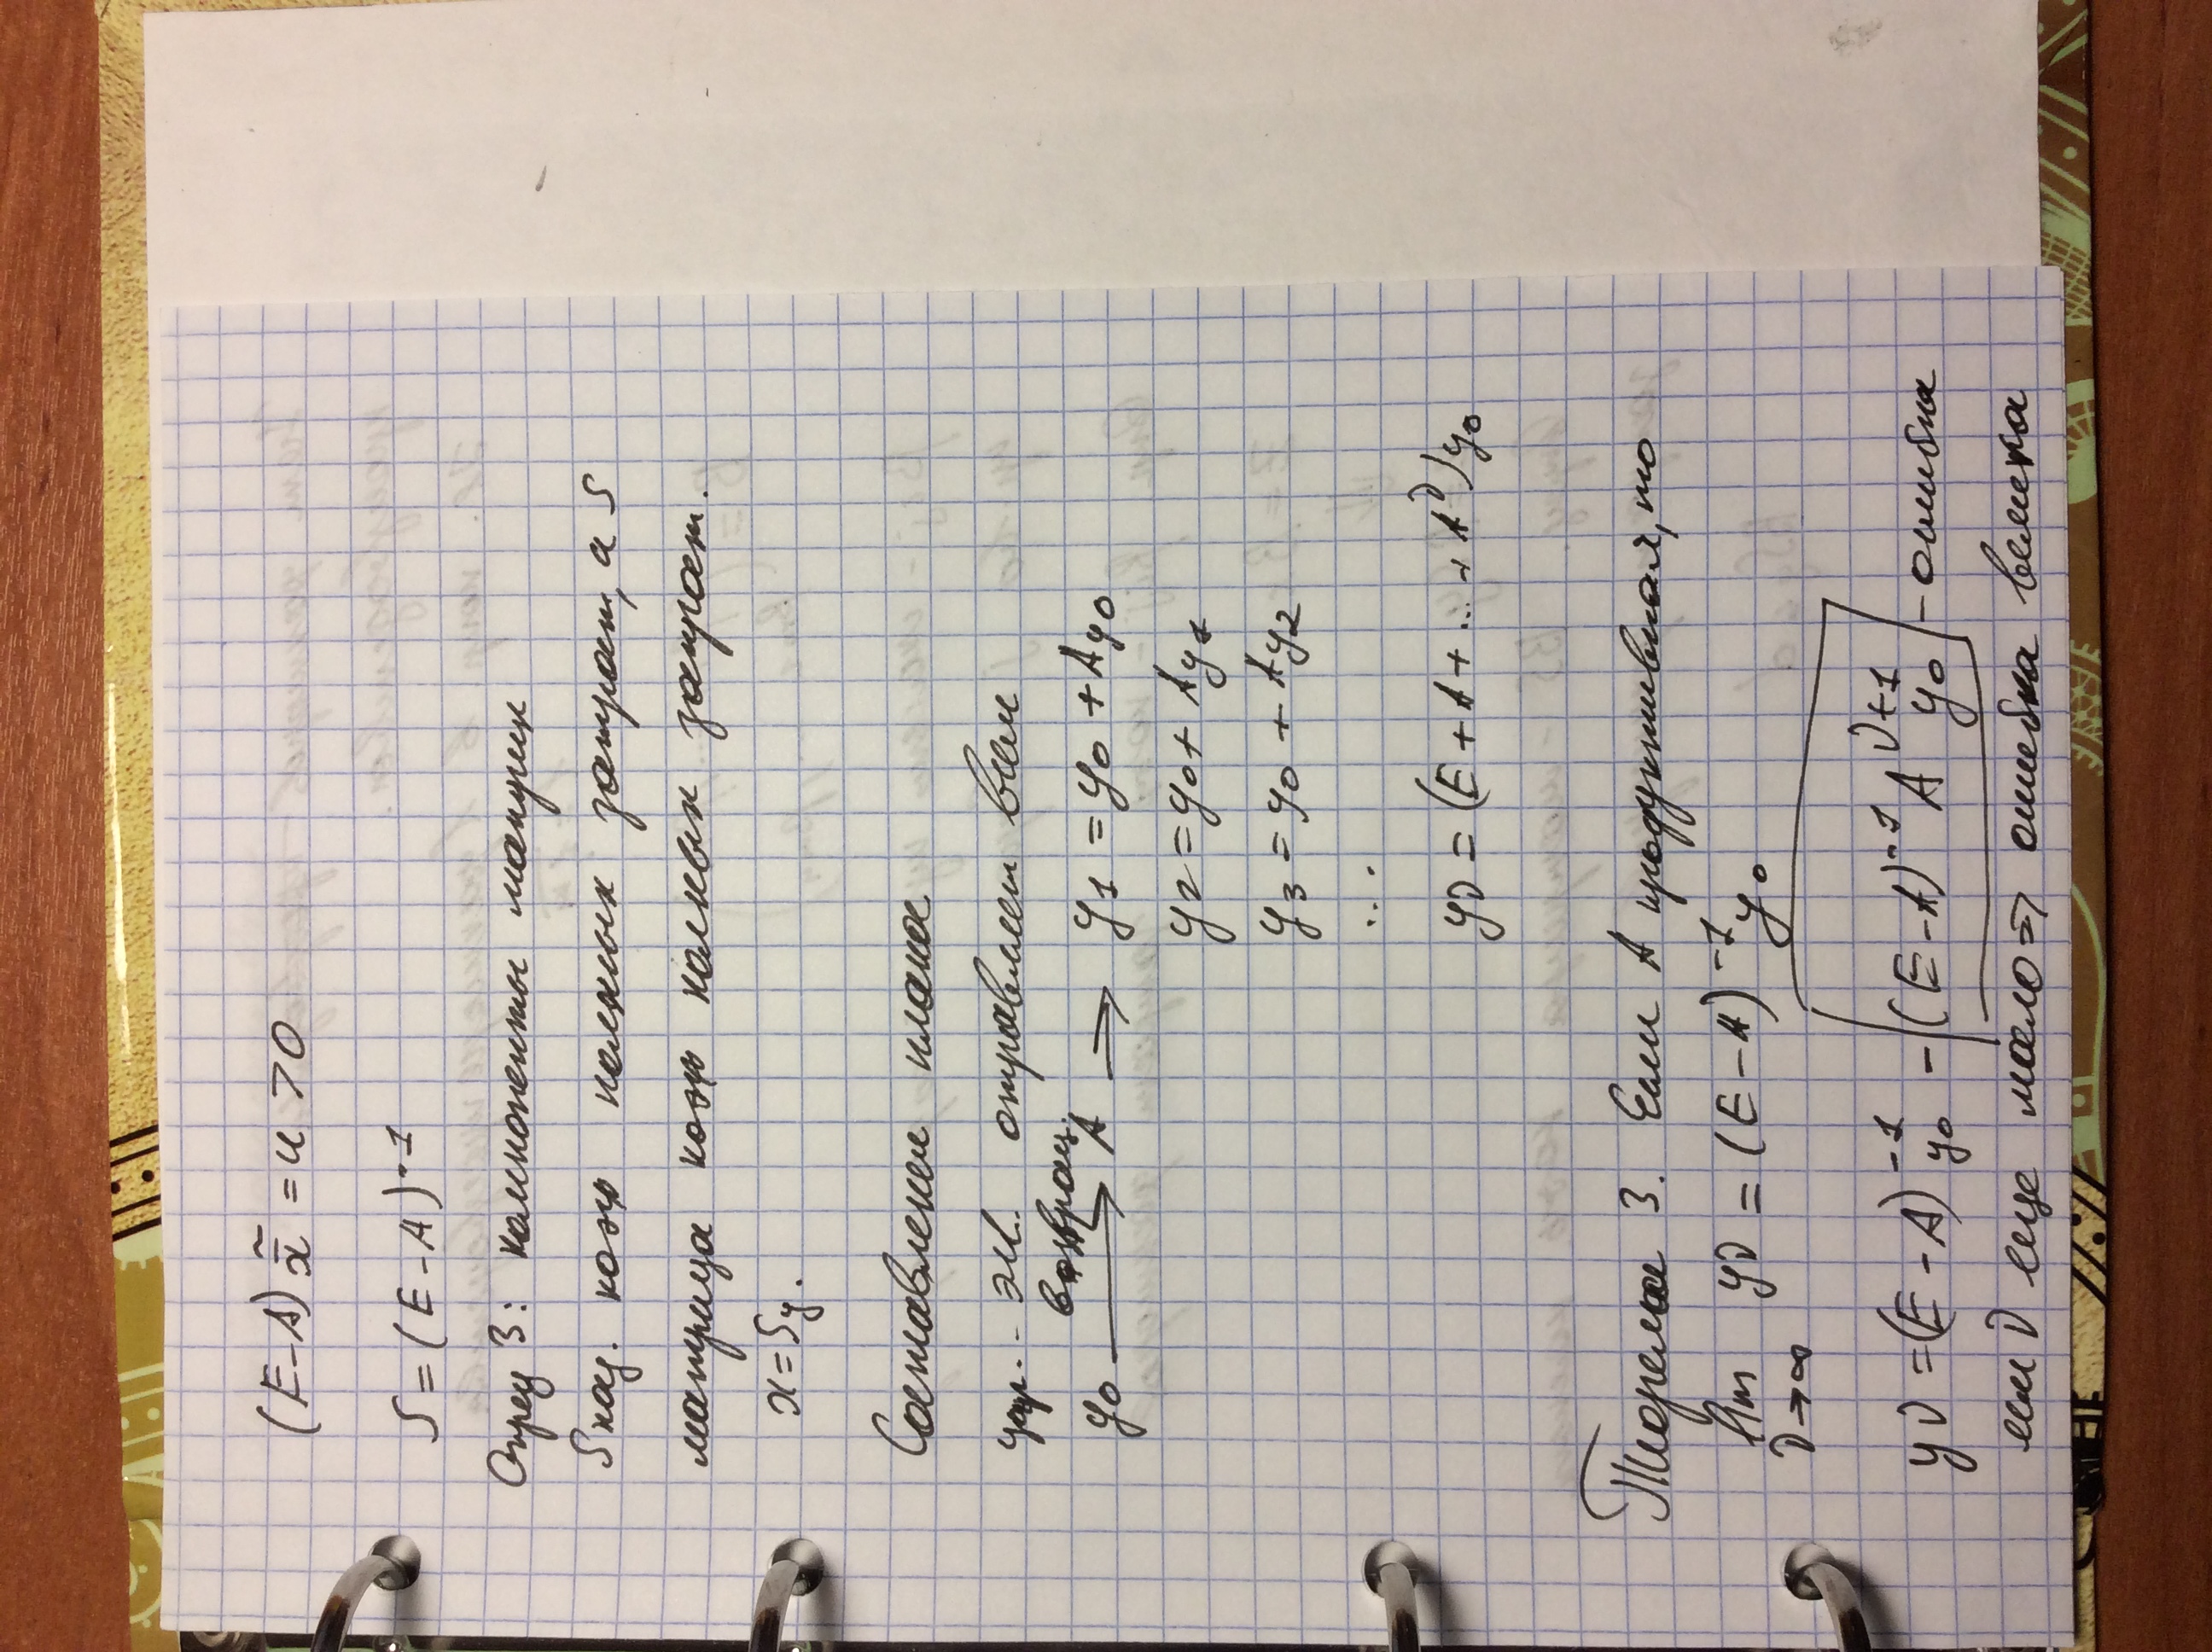 (E-A) x̃̄ = u > 0
S = (E-A)⁻¹
Опред 3: компоненты матрик
S наз. коэф полных затрат, а S
матрица коэф полных затрат.
x = Sy.
Составление плана
отправляет всем
возвращ.
y₀ → A ⇒ y₁ = y₀ + Ay₀
y₂ = y₀ + Ay₁
y₃ = y₀ + Ay₂
...
yν = (E + A + ... + A^ν) y₀
Теорема 3. Если A продуктивная, то
lim yν = (E-A)⁻¹ y₀
ν→∞
yν = (E-A)⁻¹ y₀ - (E-A)⁻¹ A^(ν+1) y₀ - ошибка
если ν еще мало ⇒ ошибка велика